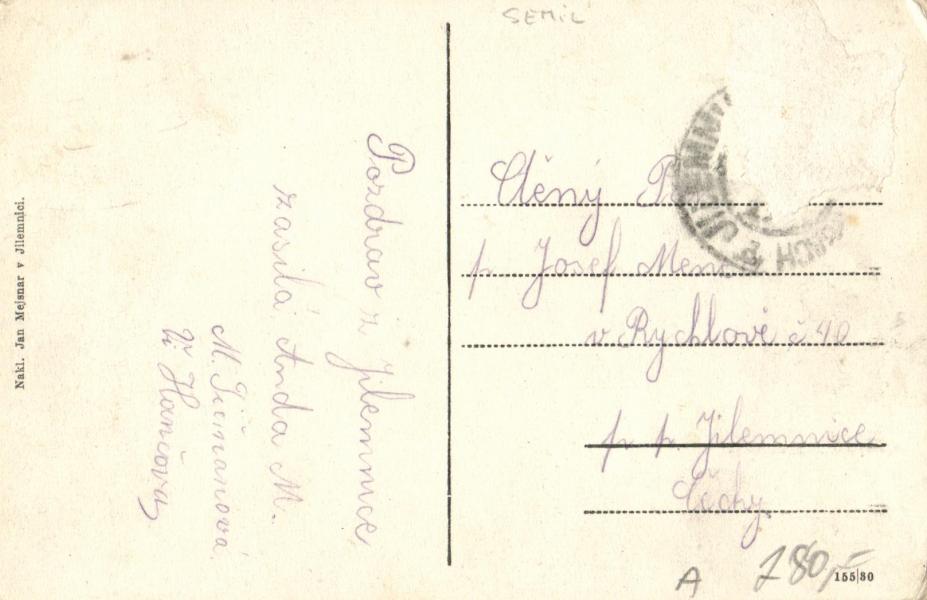 SEMIL
Nakl. Jan Mejsnar v Jilemnici.
Pozdrav z Jilemnice
zasílá Anda M.
M.
Hančova
JILEMNI
Ctěný P
p Josef
v Rychlově č 40
p. p. Jilemnice
Čechy
A 280,-
155/30